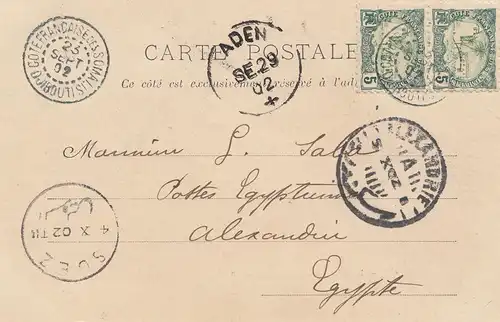 CÔTE FRANÇAISE DES SOMALIS (DJIBOUTI)
25
SEPT
02
ADEN
SE.29
02
CARTE POSTALE
Ce côté est exclusivement réservé à l'ad
5
5
Monsieur G.
Postes Egyptiennes
Alexandrie
Egypte
ALEXANDRIE
4 X 02 T
SUEZ
السويس